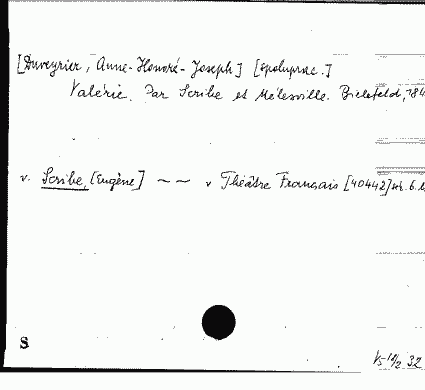 [Duveyrier, Anne-Honoré-Joseph] [spoluprac.]
Valérie. Par Scribe et Mélesville. Bielefeld, 184
v. Scribe, [Eugène] — — v Théâtre Français [40442]
S